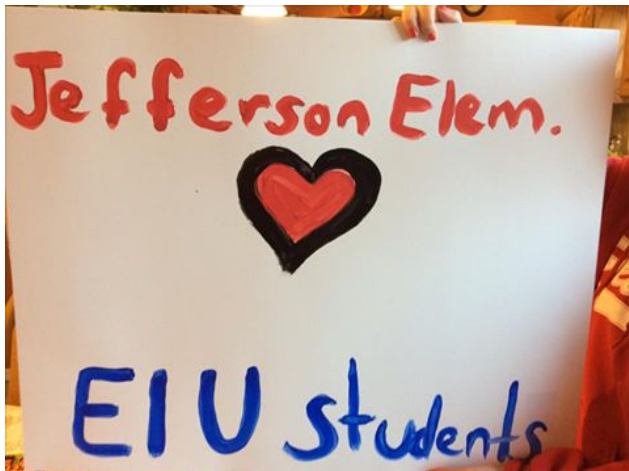 Jefferson Elem.
EIU students